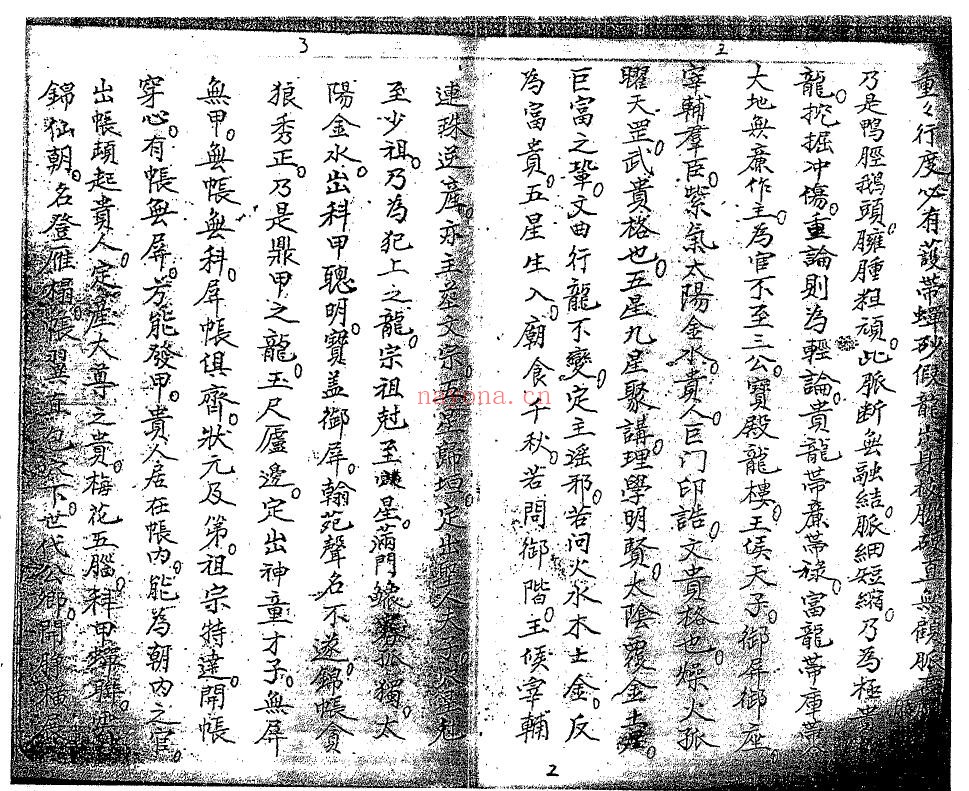 2
重々行度必有護帶蟬砂假龍出
乃是鴨脛鵝頭臃腫粗頑此脈断無融結脈細短縮乃為極
龍挖掘冲傷重論則為輕論貴龍帶廉帶祿富龍帶庫帶
大地無廉作主為官不至三公寶殿龍樓王侯天子御屏御座
宰輔羣臣紫氣太陽金水貴人巨门印誥文貴格也燥火孤
曜天罡武貴格也五星九星聚講理學明賢太陰覆金土
巨富之鞏文曲行龍不變定主谣邪若问火水木土金反
為富貴五星生入廟食千秋若問御階王侯宰輔
2
3
連珠逆產亦主文宗五星歸垣定出聖人天子
至少祖乃為犯上之龍宗祖尅至星滿門鰥寡孤獨太
陽金水出科甲聰明寶盖御屏翰苑聲名不逐錦帳貪
狼秀正乃是鼎甲之龍玉尺廬邊定出神童才子無屏
無甲無帳無科屏帳俱齊狀元及第祖宗特達開帳
穿心有帳無屏芳能發甲貴人居在帳內能為朝内之官
出帳頑起貴人定產大尊之貴梅花五腦科甲蟬聯
錦仙朝名登雁榻帳翼下世代公卿開
nayona.cn